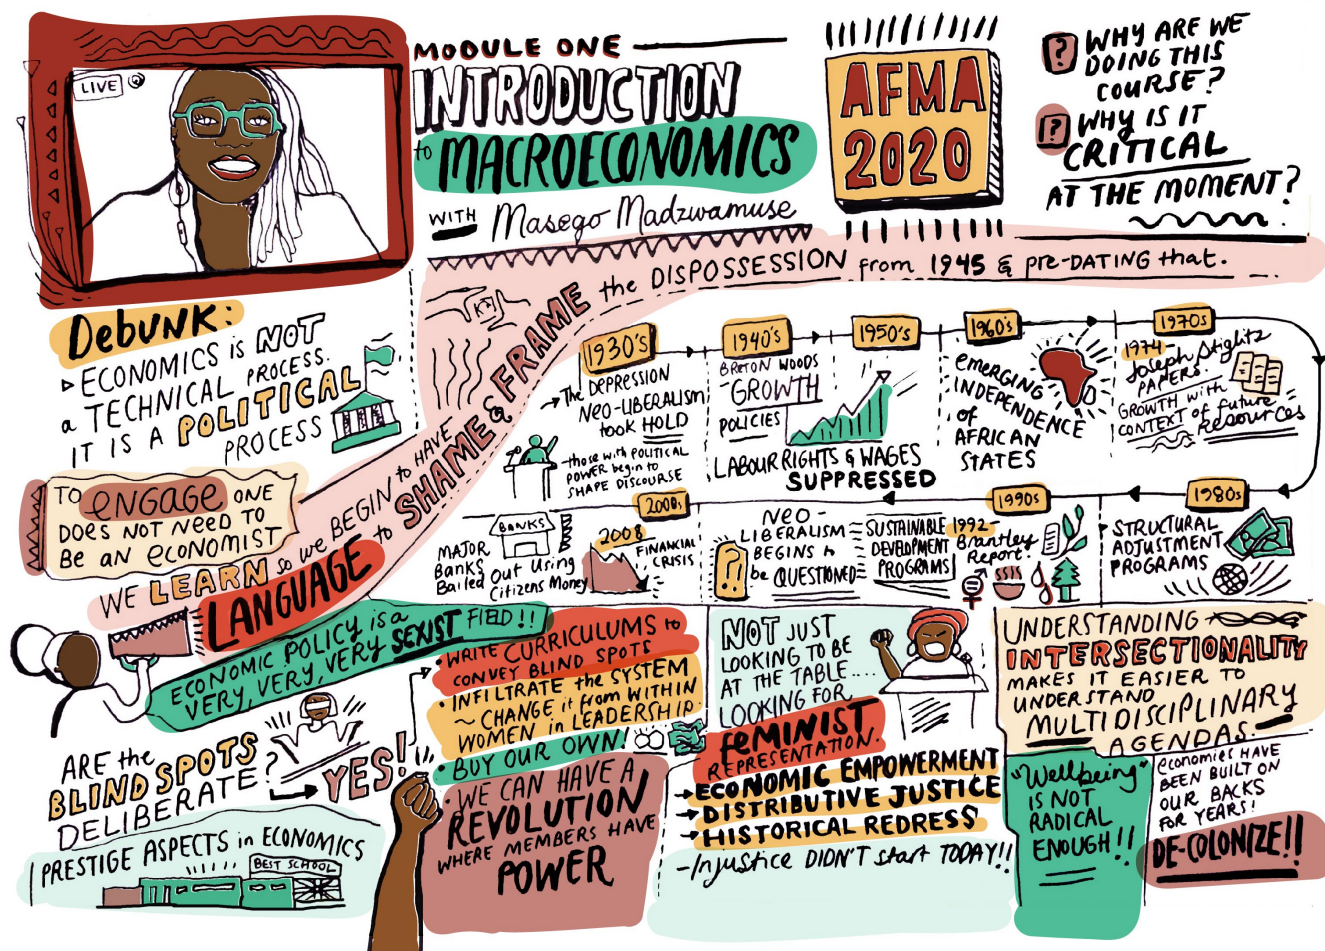 LIVE
MODULE ONE
INTRODUCTION
to MACROECONOMICS
WITH Masego Madzwamuse
AFMA
2020
? WHY ARE WE
DOING THIS
COURSE?
? WHY IS IT
CRITICAL
AT THE MOMENT?
DEBUNK:
ECONOMICS is NOT
a TECHNICAL PROCESS.
IT IS A POLITICAL
PROCESS
TO ENGAGE ONE
DOES NOT NEED TO
BE AN ECONOMIST
WE LEARN LANGUAGE to SHAME & FRAME the DISPOSSESSION from 1945 & PRE-DATING that.
so we BEGIN to HAVE
1930's
The DEPRESSION
NEO-LIBERALISM
took HOLD
-those with POLITICAL
POWER begin to
SHAPE DISCOURSE
1940's
BRETON WOODS
-GROWTH
POLICIES
1950's
LABOUR RIGHTS & WAGES
SUPPRESSED
1960's
EMERGING
INDEPENDENCE
of
AFRICAN
STATES
1970s
1974
Joseph Stiglitz
PAPERS.
GROWTH with
CONTEXT of future
Resources
1980s
STRUCTURAL
ADJUSTMENT
PROGRAMS
1990s
1992-
Brantley
Report.
SUSTAINABLE
DEVELOPMENT
PROGRAMS
NEO-
LIBERALISM
BEGINS to
be QUESTIONED
2000s
2008
FINANCIAL
CRISIS
BANKS
MAJOR
BANKS
Bailed Out Using
Citizens Money
ECONOMIC POLICY is a
VERY, VERY, VERY SEXIST FIELD!!
ARE the
BLIND SPOTS
DELIBERATE?
YES!
PRESTIGE ASPECTS in ECONOMICS
BEST SCHOOL
• WRITE CURRICULUMS to
CONVEY BLIND SPOTS
• INFILTRATE the SYSTEM
~ CHANGE it from WITHIN
WOMEN in LEADERSHIP.
• BUY OUR OWN!
• WE CAN HAVE A
REVOLUTION
WHERE MEMBERS HAVE
POWER
NOT JUST
LOOKING TO BE
AT THE TABLE....
LOOKING FOR
FEMINIST
REPRESENTATION.
ECONOMIC EMPOWERMENT
DISTRIBUTIVE JUSTICE
HISTORICAL REDRESS
-Injustice DIDN'T start TODAY!!
UNDERSTANDING
INTERSECTIONALITY
MAKES IT EASIER TO
UNDERSTAND
MULTIDISCIPLINARY
AGENDAS.
"Wellbeing"
IS NOT
RADICAL
ENOUGH!!
economies HAVE
BEEN BUILT ON
OUR BACKS
FOR YEARS!
DE-COLONIZE!!